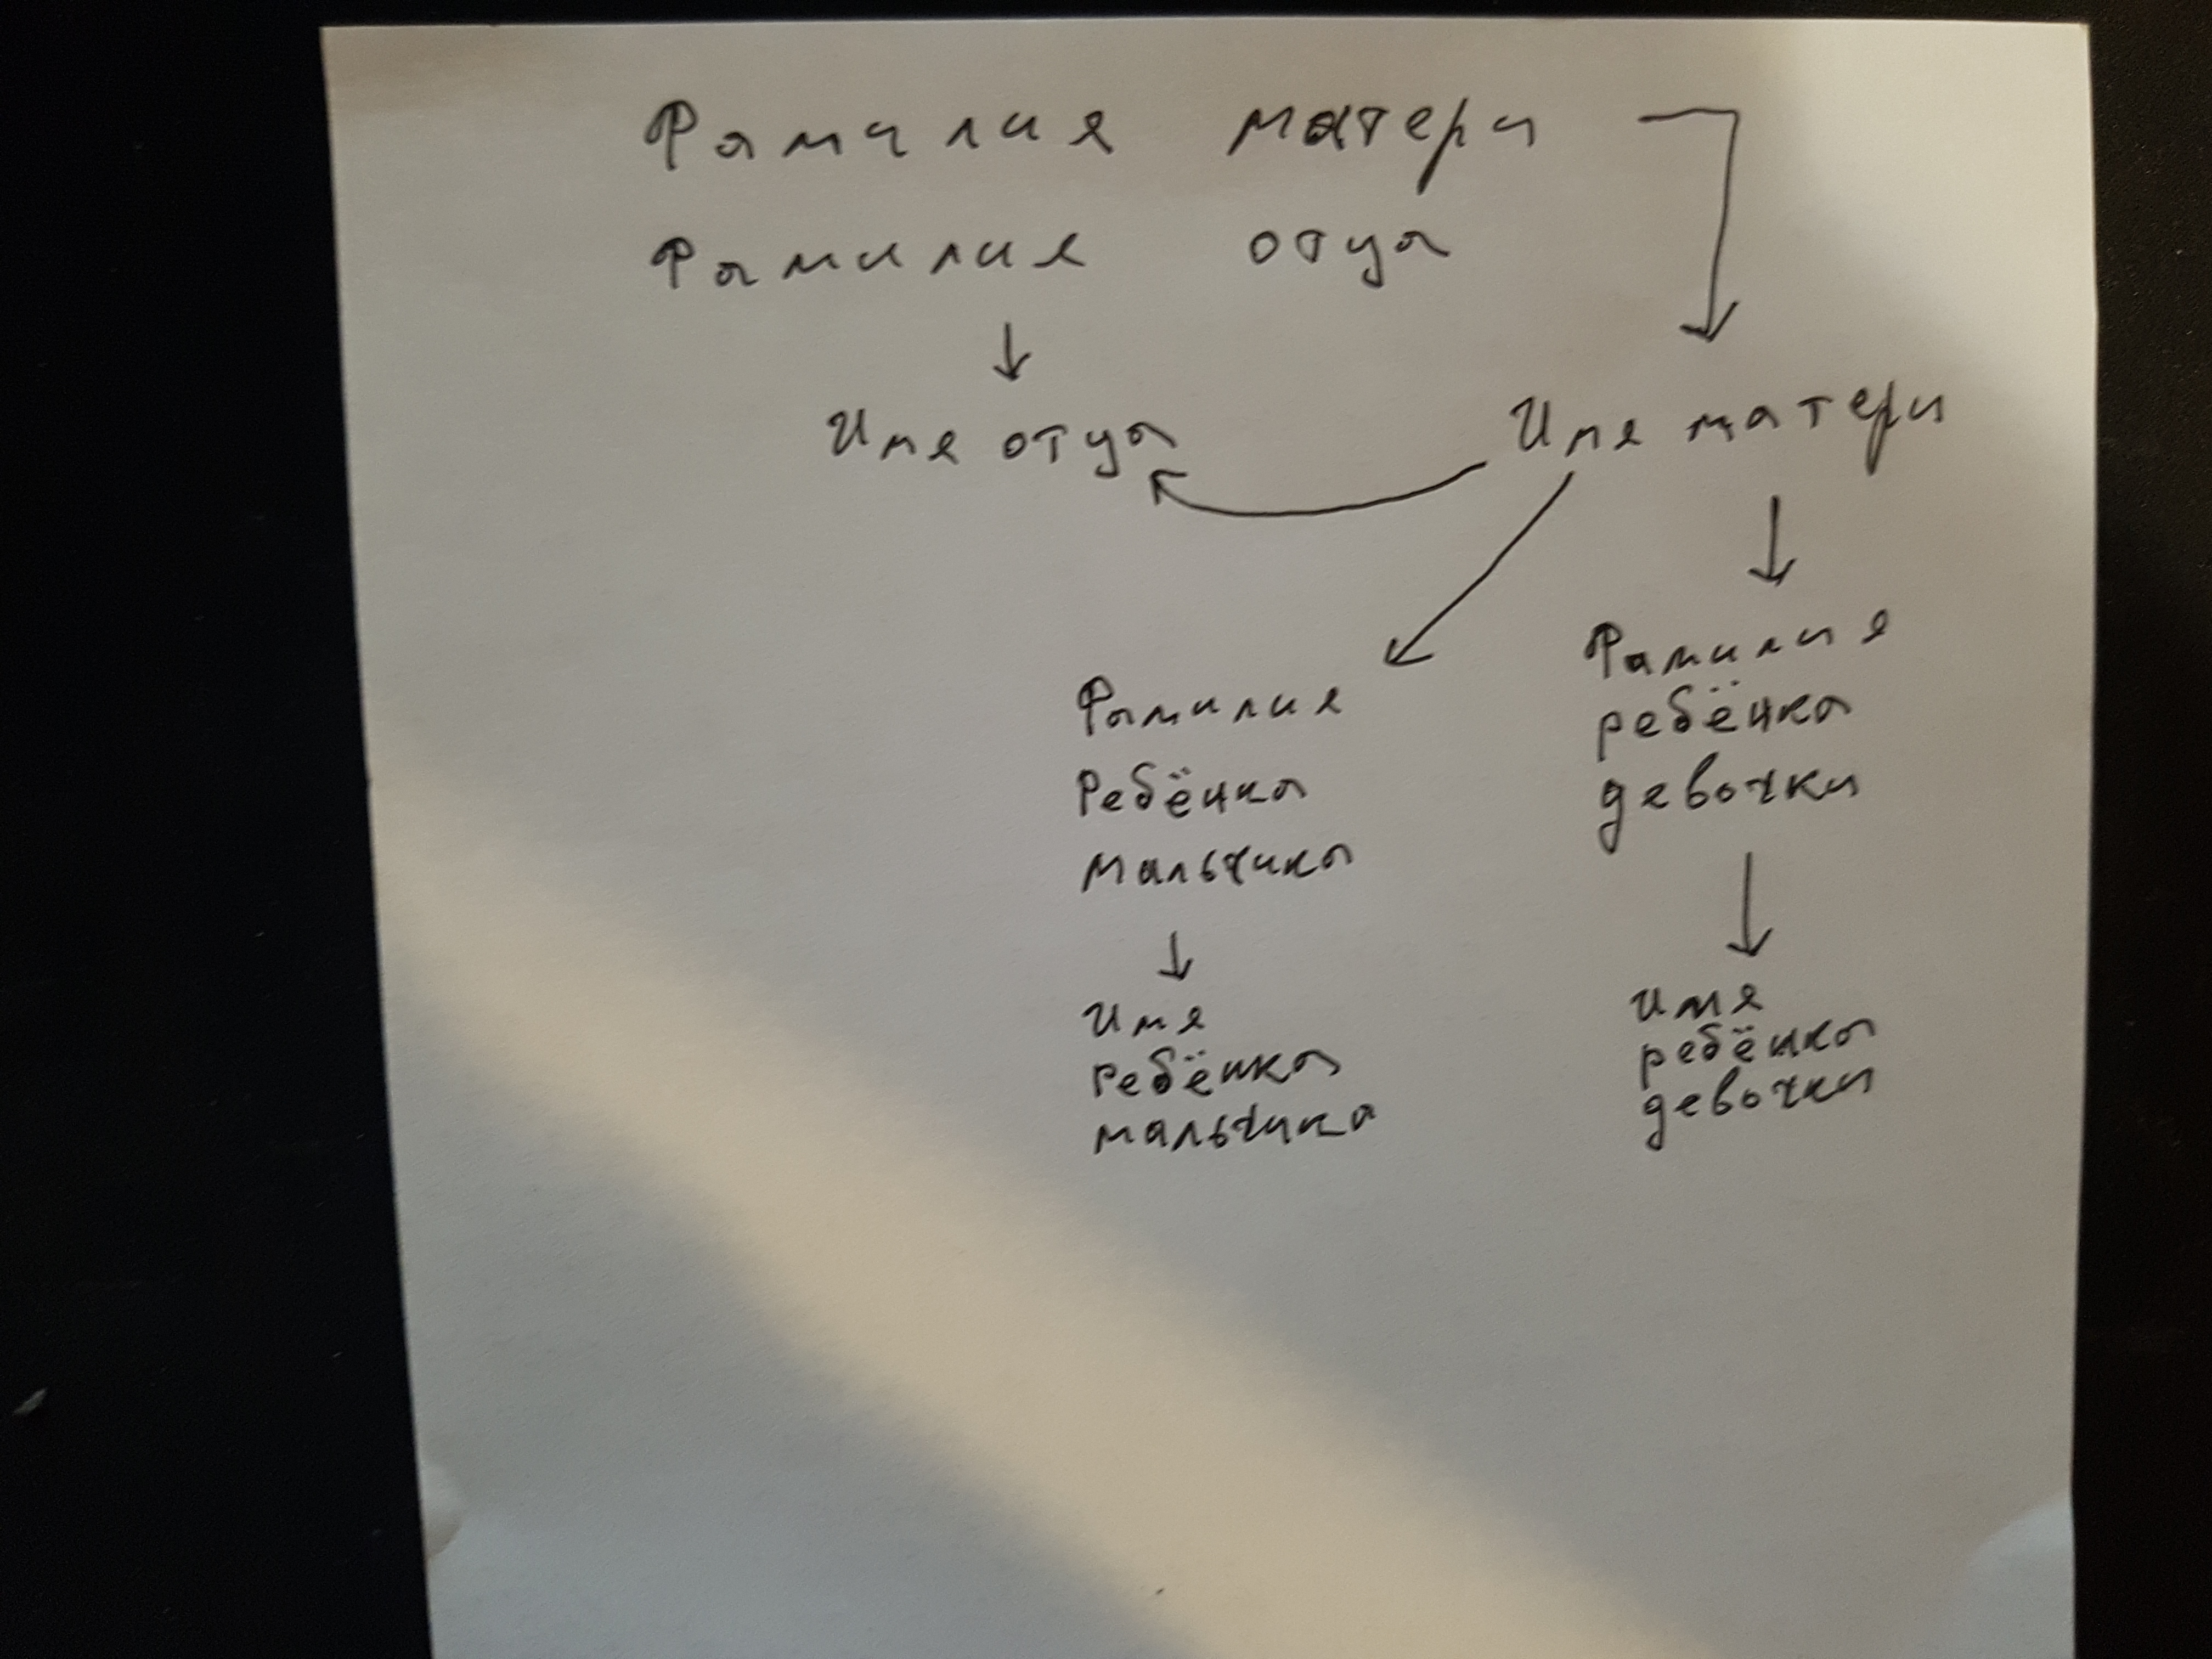 Фамилия матери
Фамилия отца
Имя отца
Имя матери
Фамилия
Ребёнка
мальчика
Имя
ребёнка
мальчика
Фамилия
ребёнка
девочки
Имя
ребёнка
девочки